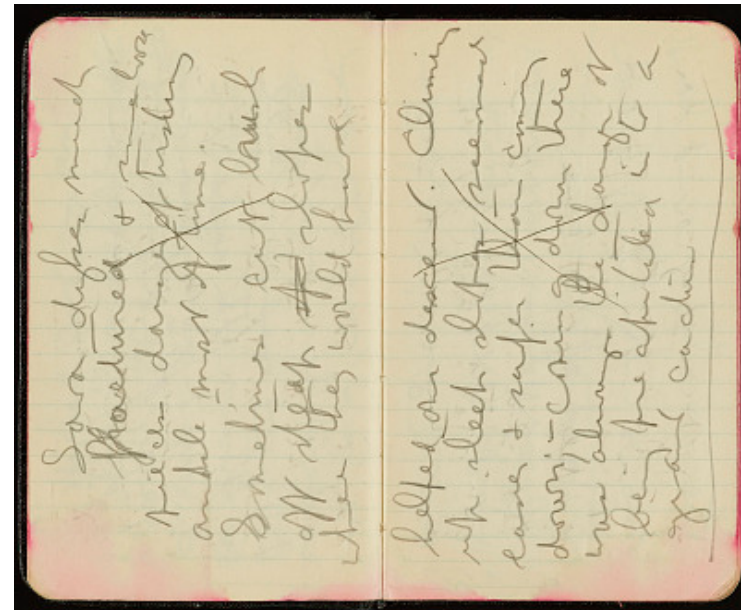 Lava dykes much
fractured &
pieces danger of twisting
ankle most of time.
Sometimes cut brush
off steep slopes
when they would have
helped on descent. Climbing
up steep slopes seemed
easier & safer than coming
down - coming down there
was always the danger of
being precipitated into a
giant cactus.